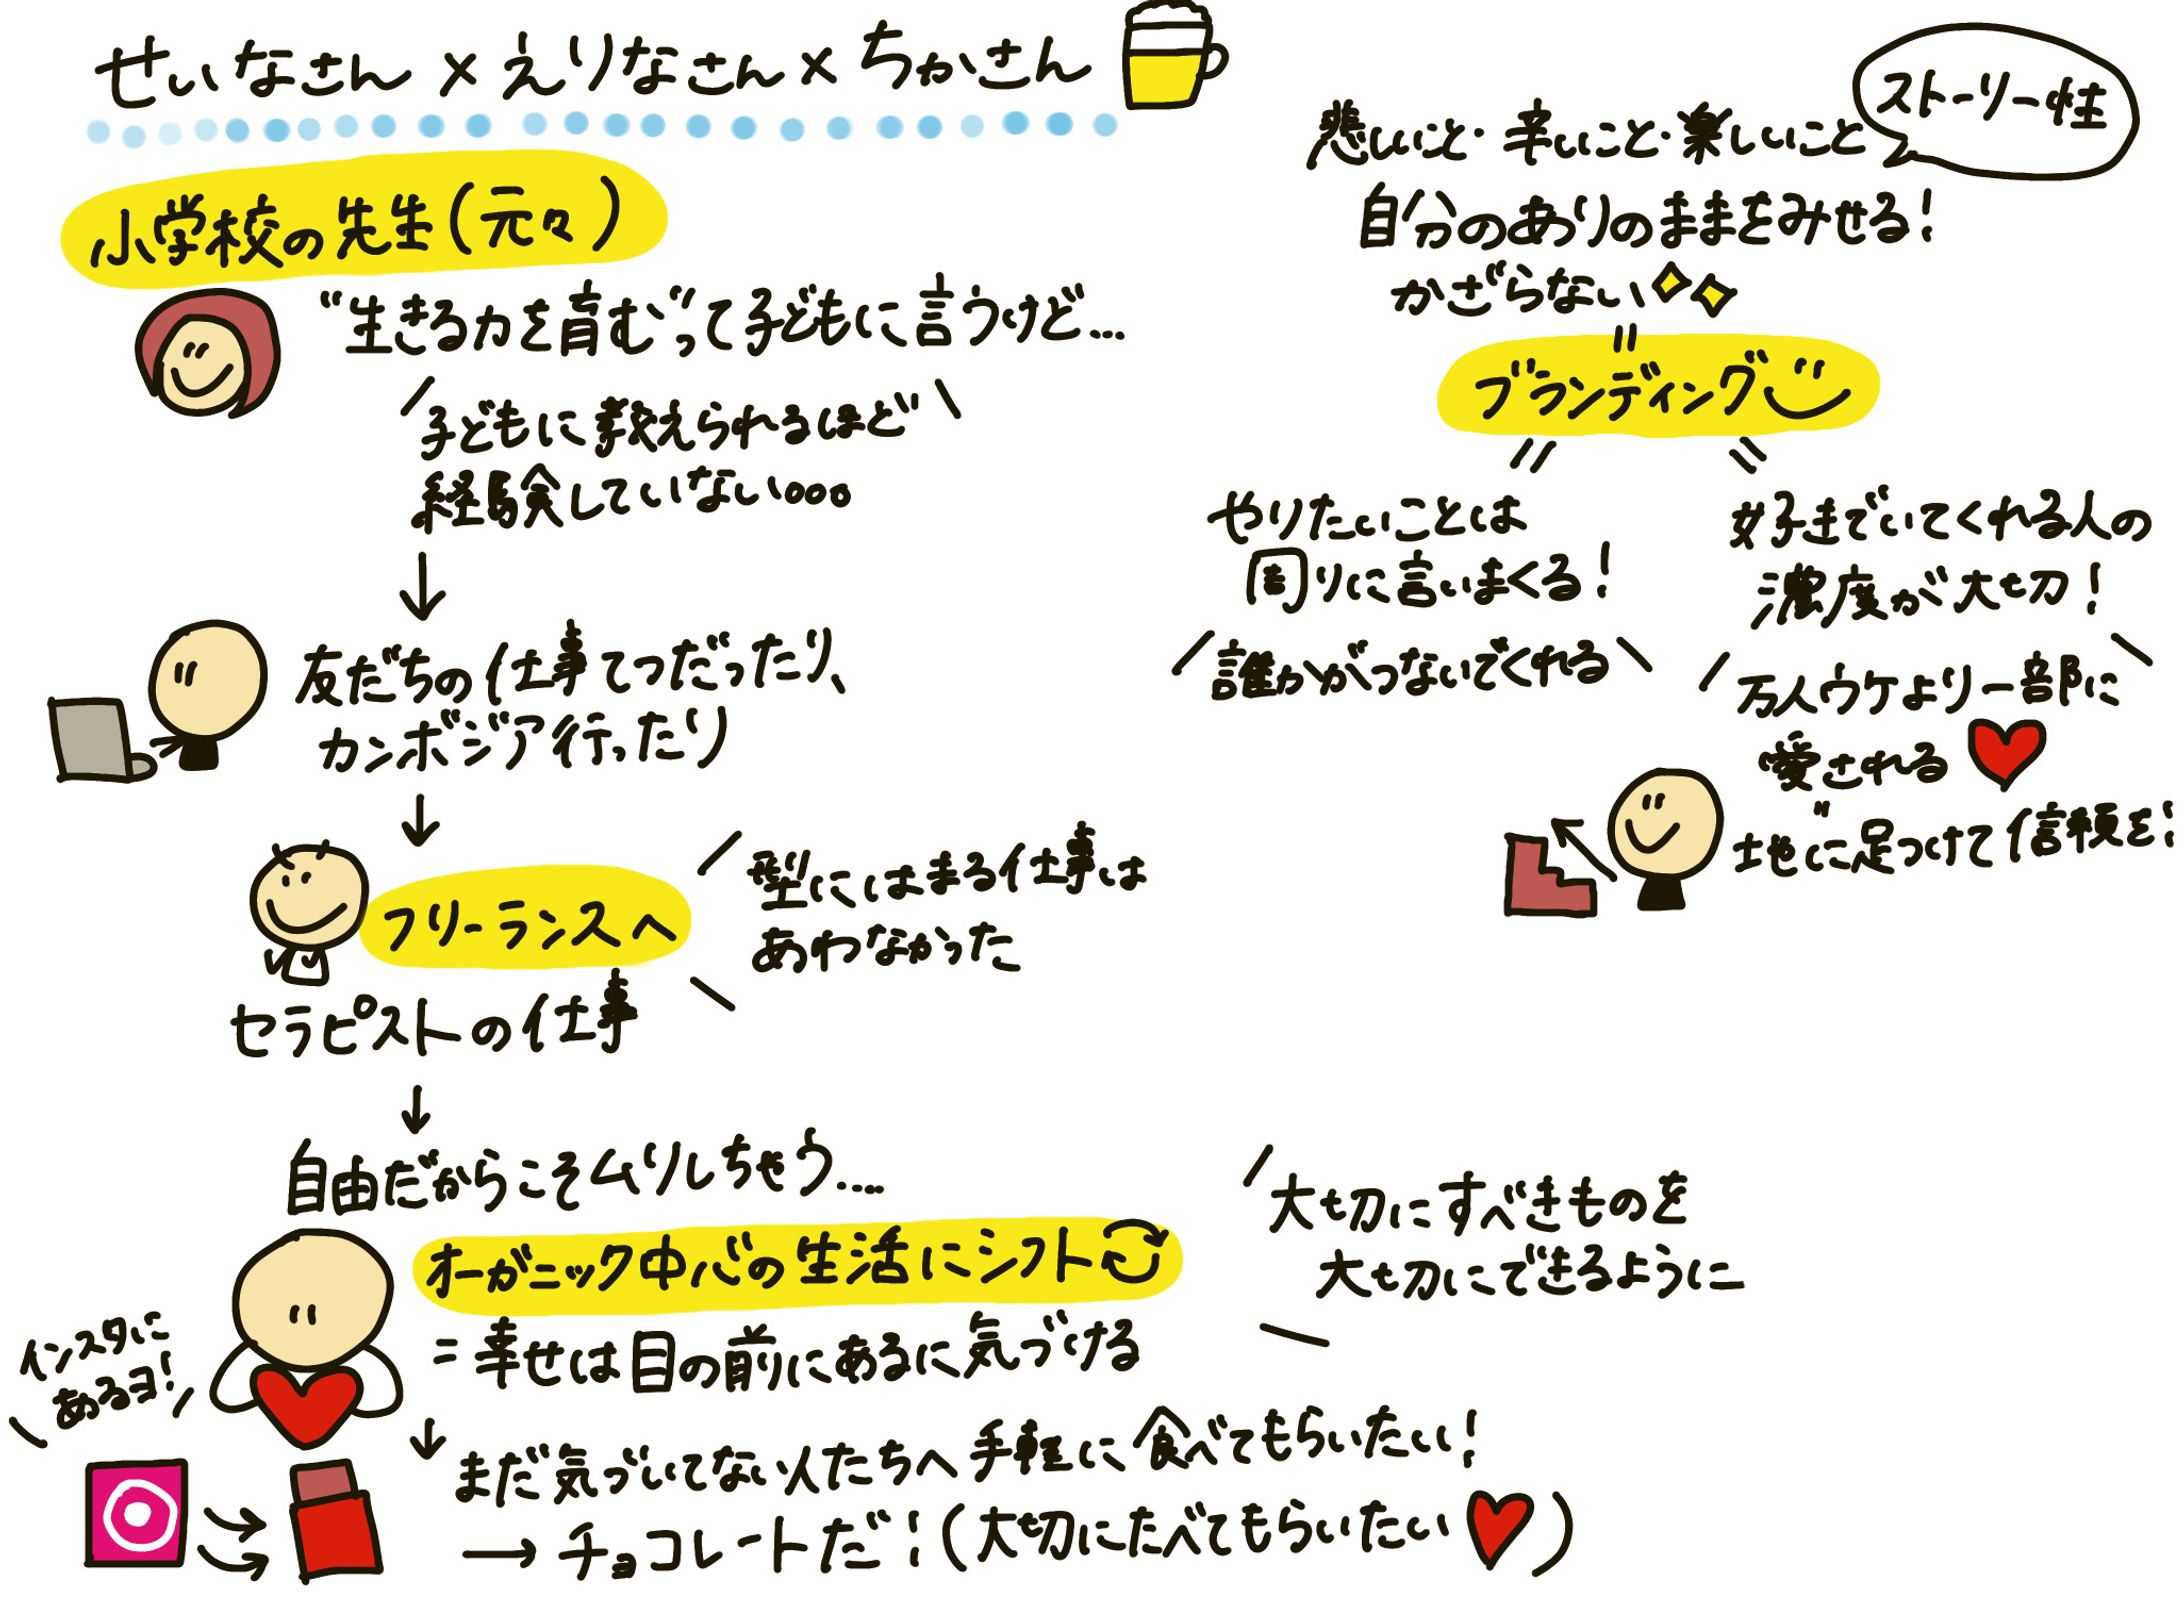 せいなさん×えりなさん×ちかさん
小学校の先生(元々)
"生きる力を育む"って子どもに言うけど...
子どもに教えられるほど
経験していない。。。
友だちの仕事てつだったり、
カンボジア行ったり
フリーランスへ
型にはまる仕事は
あわなかった
セラピストの仕事
自由だからこそムリしちゃう....
オーガニック中心の生活にシフト
=幸せは目の前にあるに気づける
大切にすべきものを
大切にできるように
インスタに
あるヨ!
まだ気づいてない人たちへ手軽に食べてもらいたい!
→チョコレートだ!(大切にたべてもらいたい♥)
ストーリー性
悲しいこと・辛いこと・楽しいこと
自分のありのままをみせる!
かざらない
=
ブランディング
やりたいことは
周りに言いまくる!
誰かがつないでくれる
好きでいてくれる人の
濃度が大切!
万人ウケより一部に
愛される♥
地に足つけて信頼を!